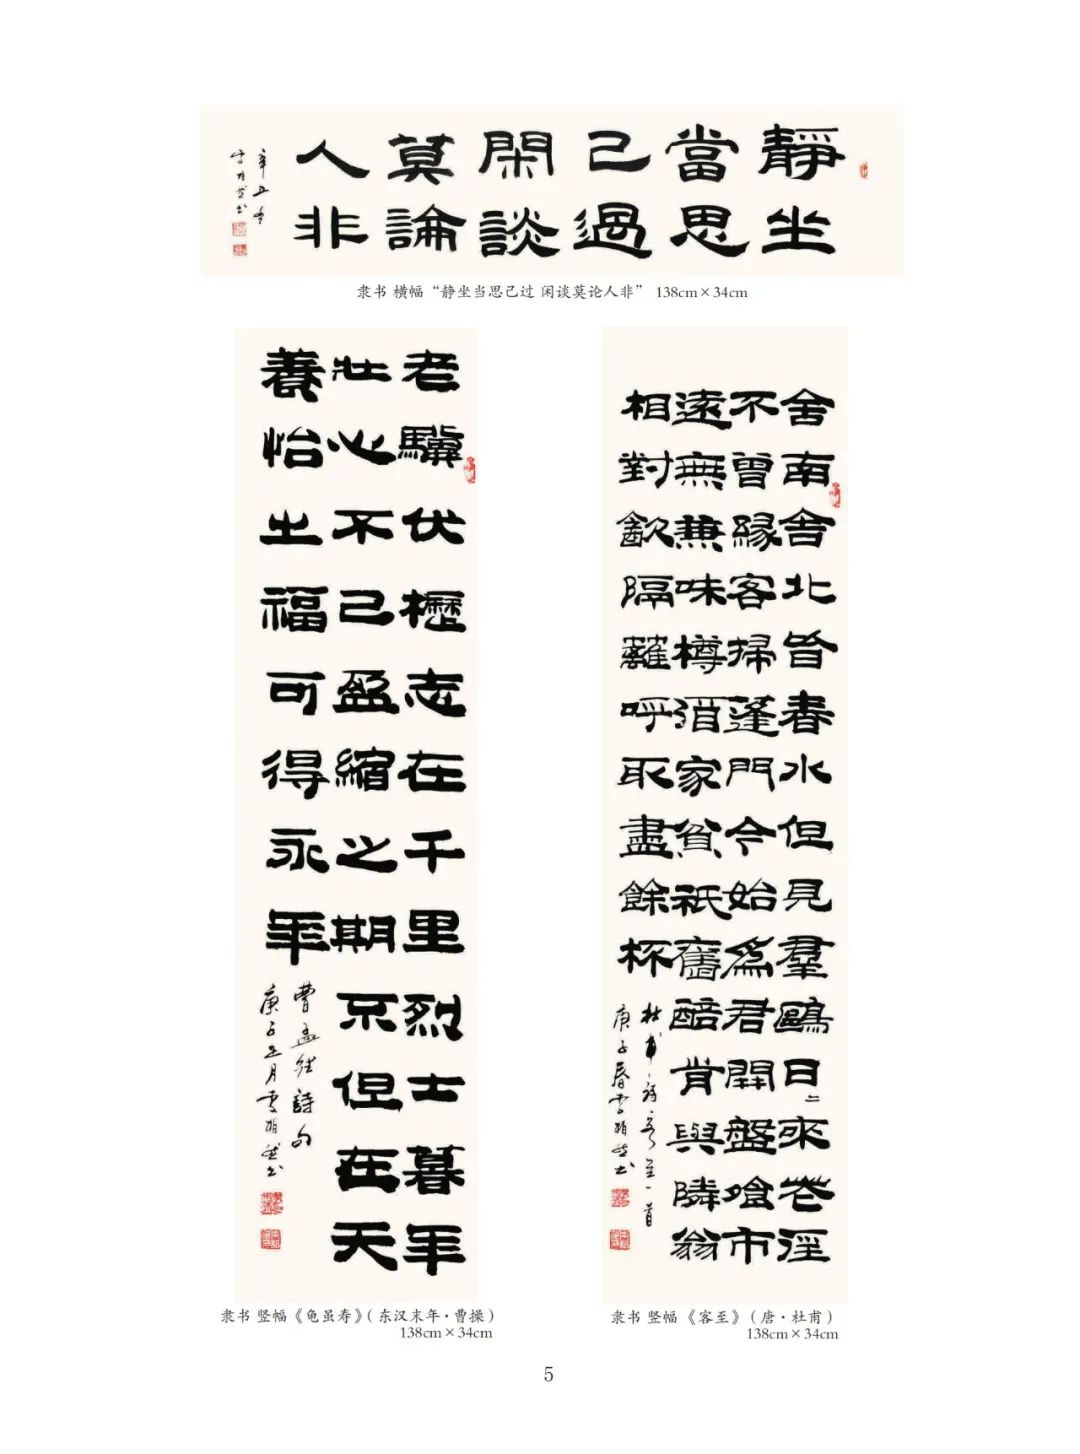 靜坐
當思
己過
閑談
莫論
人非
辛丑冬
書
隶书 横幅“静坐当思己过 闲谈莫论人非” 138cm×34cm
老驥伏櫪志在千里烈士暮年
壯心不已盈縮之期不但在天
養怡之福可得永年
曹孟德詩句
庚子正月書
隶书 竖幅《龟虽寿》（东汉末年·曹操）
138cm×34cm
舍南舍北皆春水但見羣鷗日〻來花徑
不曾緣客掃蓬門今始為君開盤飧市
遠無兼味樽酒家貧祇舊醅肯與隣翁
相對飲隔籬呼取盡餘杯
杜甫詩客至一首
庚子春書
隶书 竖幅《客至》（唐·杜甫）
138cm×34cm
5